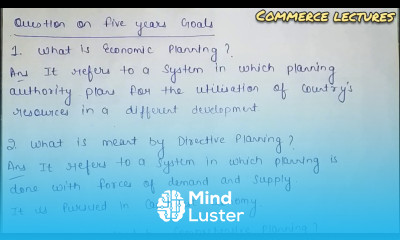 COMMERCE LECTURES
Question on five years Goals
1. What is Economic Planning?
Ans It refers to a system in which planning
authority plan for the utilisation of country's
resources in a different development
2. What is meant by Directive Planning?
Ans It refers to a system in which planning is
done with forces of demand and supply
It is Pursued in
Mind
Luster
Planning?